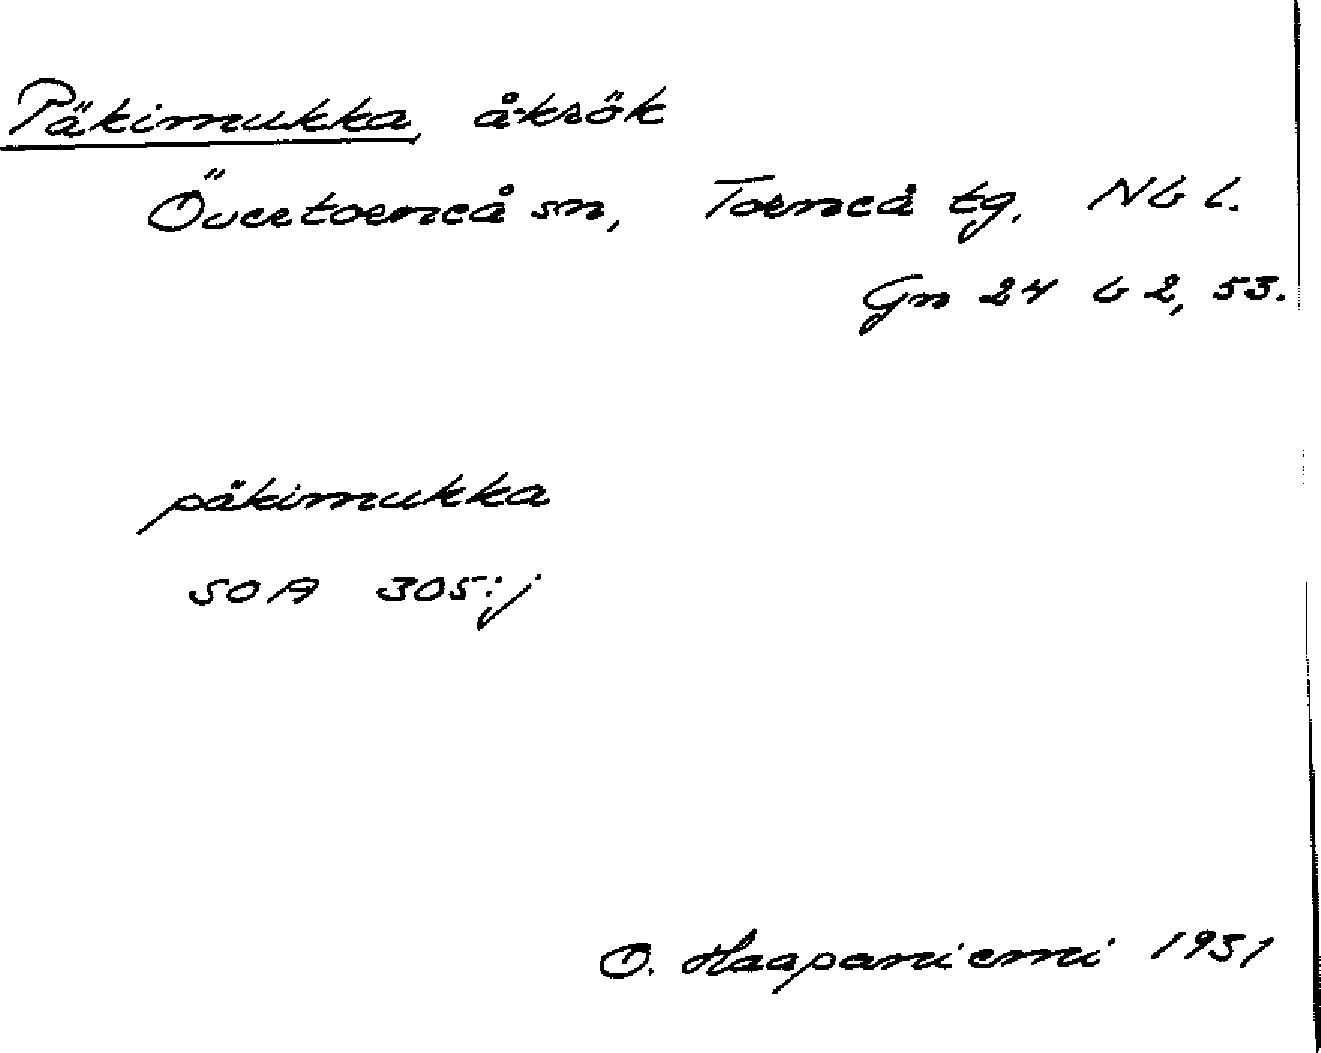 Päkimukka, åkrök
Övertorneå sn, Torneå tg. Nb l.
Gn 24 b 2, 53.
päkimukka
SOA 305:j
O. Haapaniemi 1951